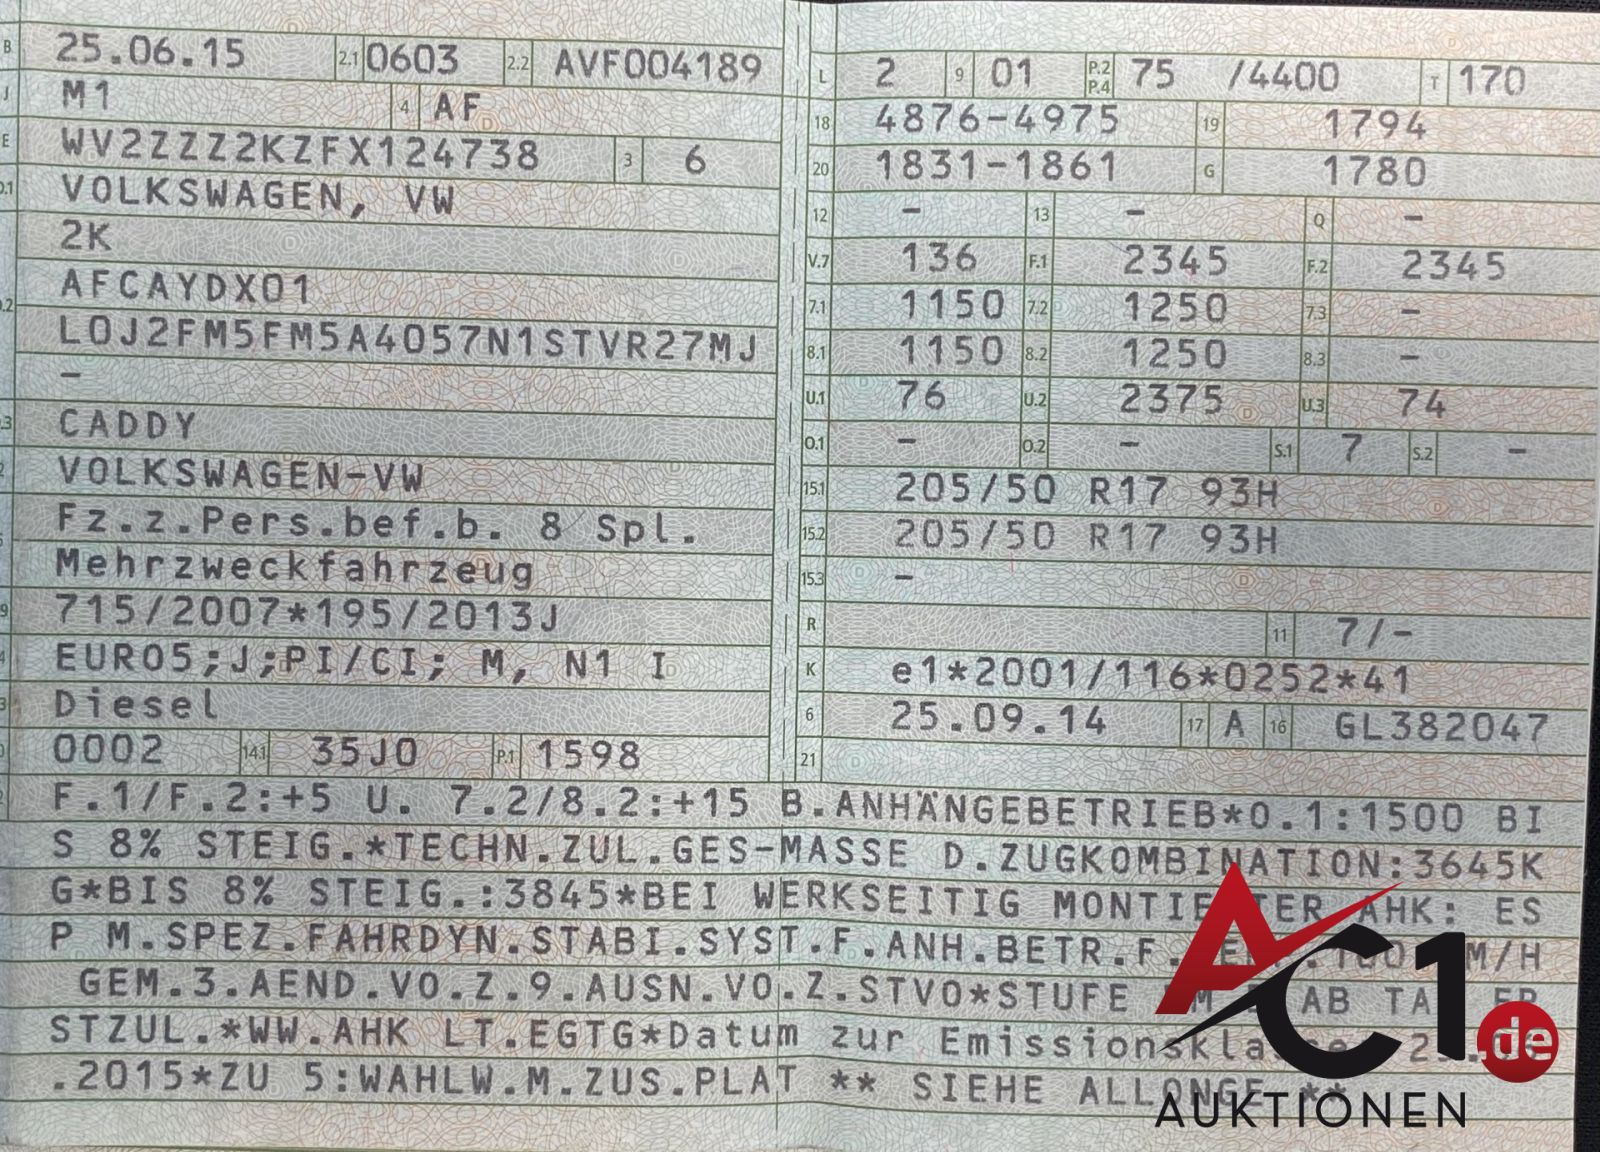 B 25.06.15 2.1 0603 2.2 AVF004189
J M1 4 AF
E WV2ZZZ2KZFX124738 3 6
VOLKSWAGEN, VW
2K
AFCAYDX01
LOJ2FM5FM5A4057N1STVR27MJ
–
CADDY
VOLKSWAGEN-VW
Fz.z.Pers.bef.b. 8 Spl.
Mehrzweckfahrzeug
715/2007*195/2013J
EURO5;J;PI/CI; M, N1 I
Diesel
0002 14.1 35J0 P.1 1598
L 2 9 01 P.2 P.4 75 /4400 T 170
18 4876-4975 19 1794
20 1831-1861 G 1780
12 – 13 – Q –
V.7 136 F.1 2345 F.2 2345
7.1 1150 7.2 1250 7.3 –
8.1 1150 8.2 1250 8.3 –
U.1 76 U.2 2375 U.3 74
O.1 – O.2 – S.1 7 S.2 –
15.1 205/50 R17 93H
15.2 205/50 R17 93H
15.3 –
R 11 7/-
K e1*2001/116*0252*41
6 25.09.14 17 A 16 GL382047
21
F.1/F.2:+5 U. 7.2/8.2:+15 B.ANHÄNGEBETRIEB*O.1:1500 BI
S 8% STEIG.*TECHN.ZUL.GES-MASSE D.ZUGKOMBINATION:3645K
G*BIS 8% STEIG.:3845*BEI WERKSEITIG MONTIERTER AHK: ES
P M.SPEZ.FAHRDYN.STABI.SYST.F.ANH.BETR.F. M/H
GEM.3.AEND.VO.Z.9.AUSN.VO.Z.STVO*STUFE AB
STZUL.*WW.AHK LT.EGTG*Datum zur Emissionsklasse
.2015*ZU 5:WAHLW.M.ZUS.PLAT ** SIEHE ALLONGE **
AC1.de
AUKTIONEN